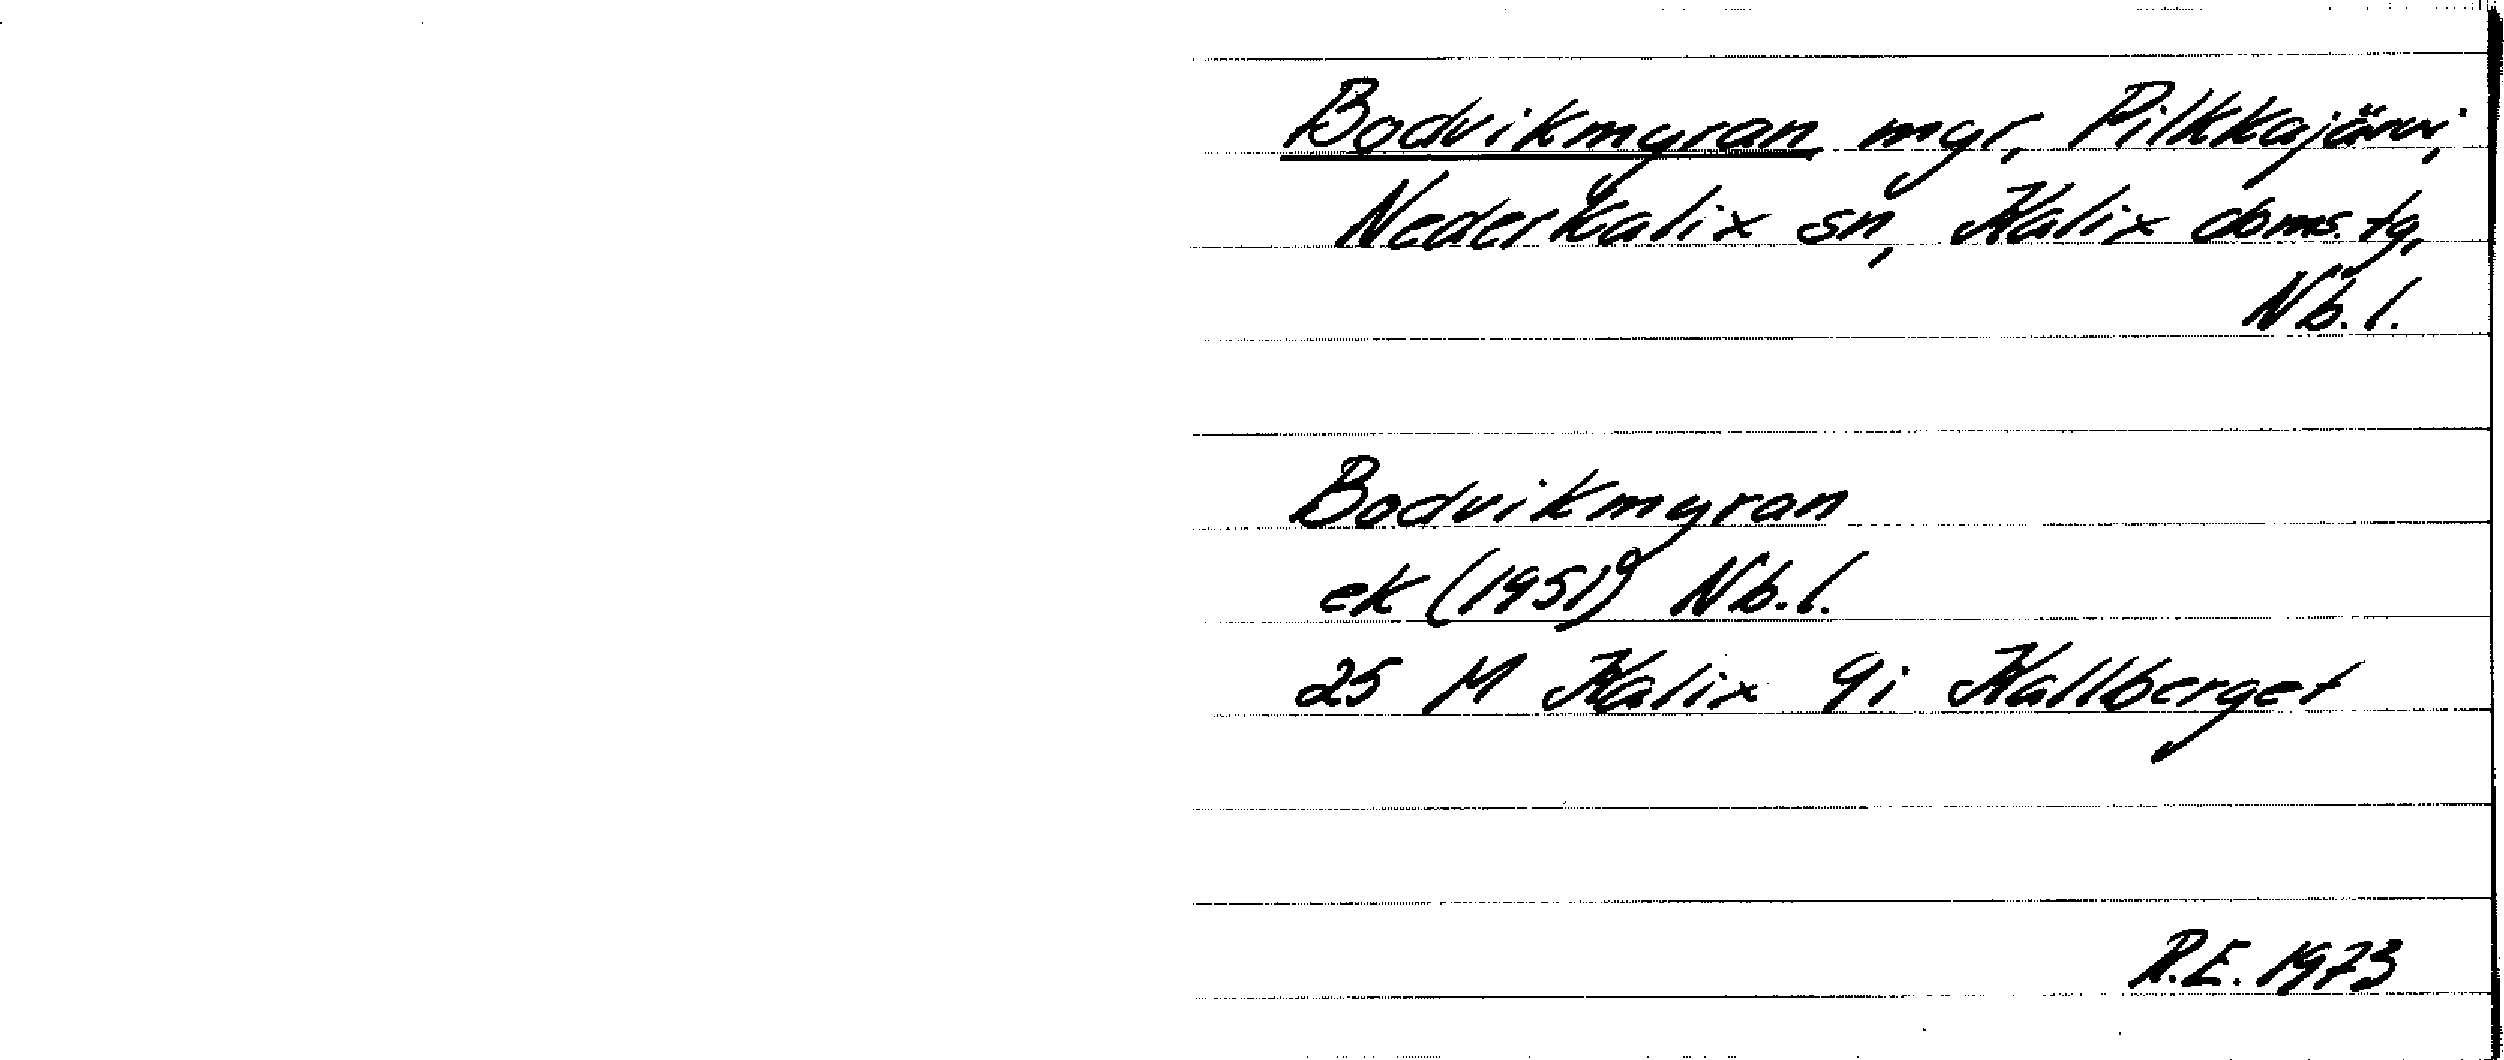 Bodvikmyran myr, Pilkkajärvi,
Nederkalix sn, Kalix doms. tg,
Nb. l.
Bodvikmyran
ek (1951) Nb. l.
25 M Kalix 9i Kallberget
R.E. 1973